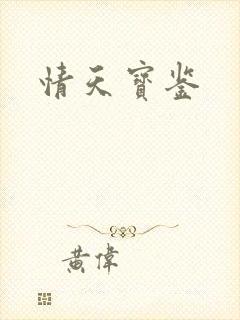 情天寳鉴
黄偉